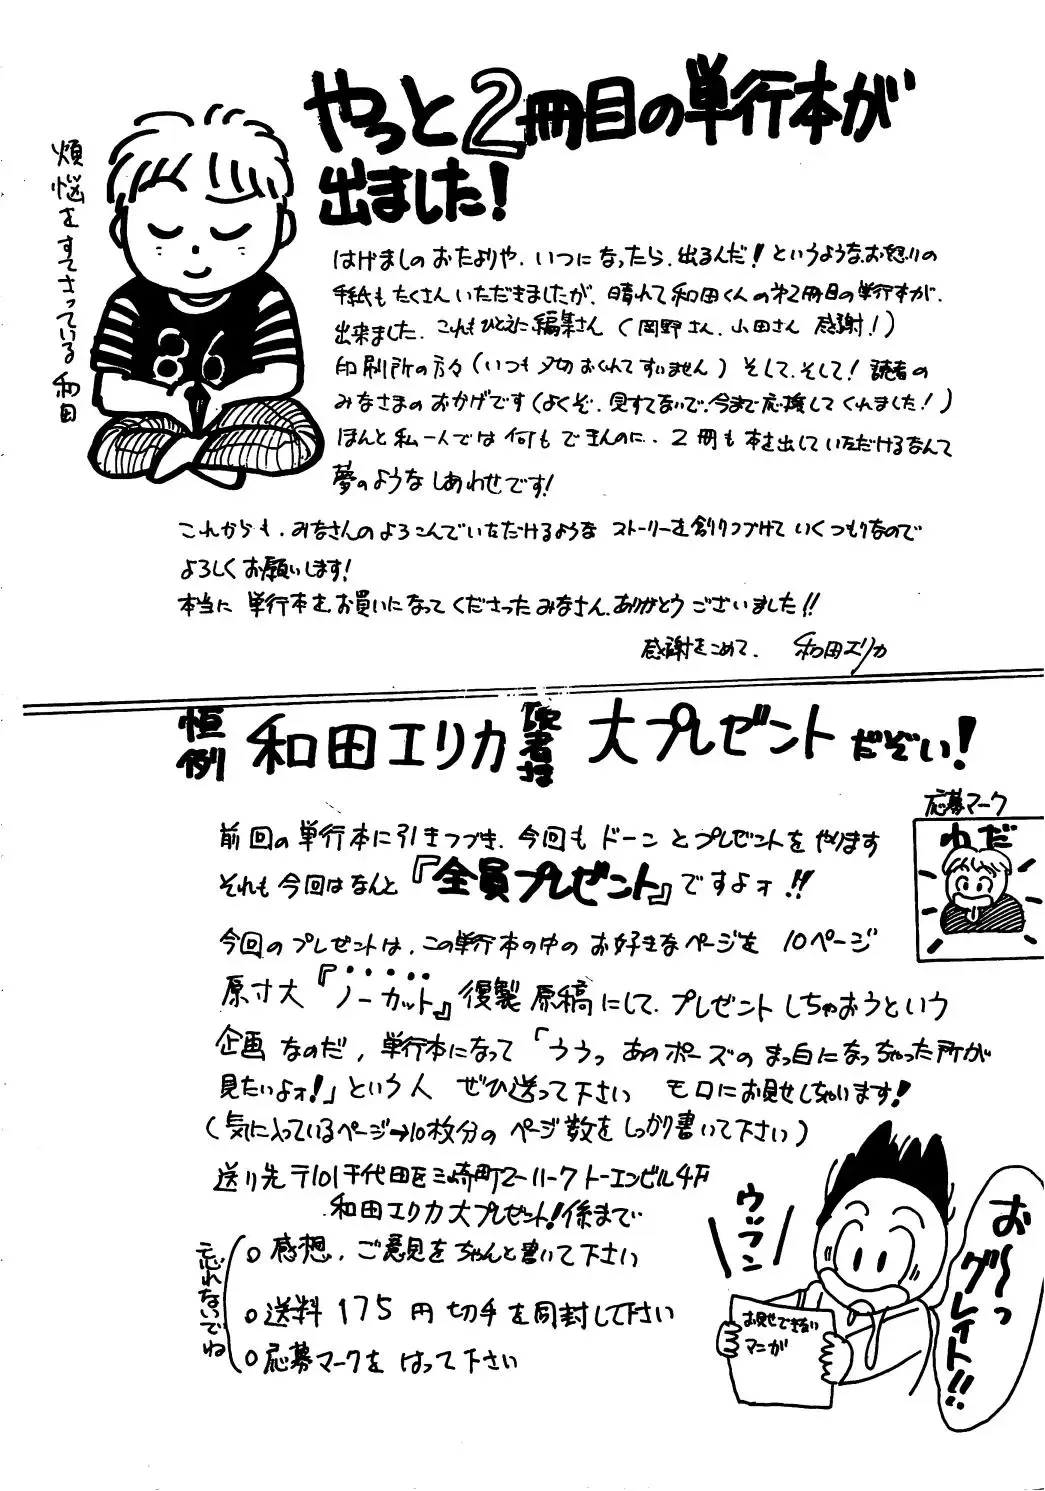 やっと2冊目の単行本が
出ました!
煩悩をすてさっている和田
はげましのおたよりや、いつになったら、出るんだ!というようなお怒りの
手紙もたくさんいただきましたが、晴れて和田くんの㐧2冊目の単行本が、
出来ました。これもひとえに編集さん(岡野さん、小田さん感謝!)
印刷所の方々(いつも〆切おくれてすいません)そして、そして!読者の
みなさまのおかげです(よくぞ、見すてないで、今まで応援してくれました!)
ほんと私一人では何もできんのに、2冊も本を出していただけるなんて
夢のようなしあわせです!
これからも、みなさんのよろこんでいただけるような ストーリーを創りつづけていくつもりなので
よろしくお願いします!
本当に 単行本を、お買いになってくださったみなさん、ありがとうございました!!
感謝をこめて、 和田エリカ
恒例 和田エリカ 読者さま 大プレゼントだぞい!
応募マーク
わだ
前回の単行本に引きつづき、今回もドーンとプレゼントをやります
それも今回はなんと『全員プレゼント』ですよォ!!
今回のプレゼントは、この単行本の中のお好きなページを 10ページ
原寸大『ノーカット』復製原稿にして、プレゼントしちゃおうという
企画なのだ、単行本になって「ううっ あのポーズのまっ白になっちゃった所が
見たいよォ!」という人 ぜひ送って下さい モロにお見せしちゃいます!
(気に入っているページ→10枚分のページ数をしっかり書いて下さい)
送り先〒101千代田区三崎町2-11-7トーエンビル4F
和田エリカ大プレゼント!係まで
忘れないでね
○感想、ご意見をちゃんと書いて下さい
○送料175円切手を同封して下さい
○応募マークをはって下さい
ウッフン
お見せできない
マンガ
お〜っ
グレイト!!